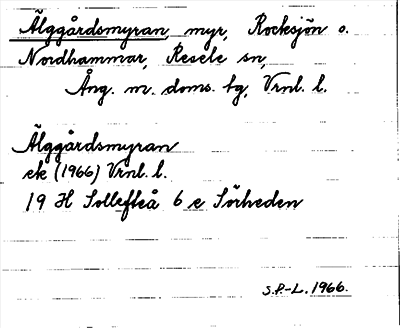 Älggårdsmyran myr, Rocksjön o.
Nordhammar, Resele sn,
Ång. m. doms. tg, Vrnl. l.
Älggårdsmyran
ek (1966) Vrnl. l.
19 H Sollefteå 6 e Sörheden
S.P-L. 1966.